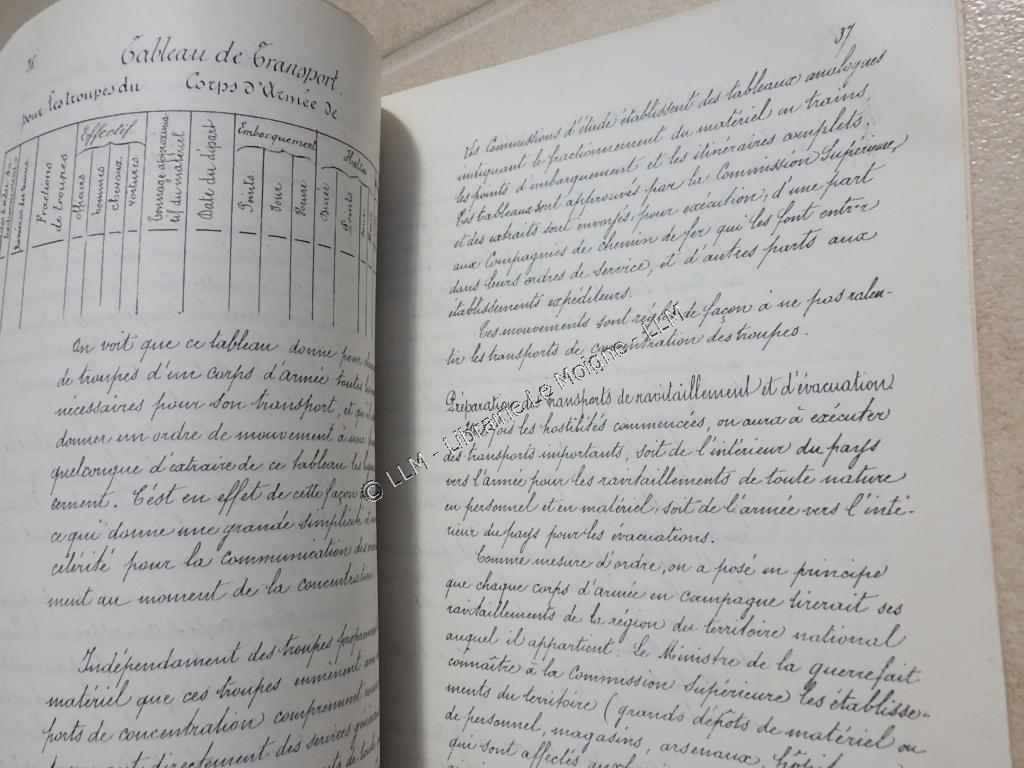 36
Tableau de Transport
pour les troupes du Corps d'Armée de
Effectif
Embarquement
Haltes
Fractions de troupes
officiers
hommes
chevaux
voitures
Tonnage approximatif du matériel
Date du départ
Points
Jour
Heure
Durée
Points
On voit que ce tableau donne pour
de troupes d'un corps d'armée toutes les
nécessaires pour son transport, et qu'il
donner un ordre de mouvement à une
quelconque d'extraire de ce tableau les
cement. C'est en effet de cette façon
ce qui donne une grande simplicité
célérité pour la communication des
ment au moment de la concentration
Indépendamment des troupes
matériel que ces troupes emmènent
ports de concentration comprennent
directement des services
37
Les Commissions d'étude établissent des tableaux analogues
indiquant le fractionnement du matériel en trains,
les points d'embarquement et les itinéraires complets.
Ces tableaux sont approuvés par la Commission Supérieure,
et des extraits sont envoyés, pour exécution, d'une part
aux Compagnies de chemin de fer qui les font entrer
dans leurs ordres de service, et d'autres parts aux
établissements expéditeurs.
Ces mouvements sont réglés de façon à ne pas ralen-
tir les transports de concentration des troupes.
Préparation des transports de ravitaillement et d'évacuation.
Une fois les hostilités commencées, on aura à exécuter
des transports importants, soit de l'intérieur du pays
vers l'armée pour les ravitaillements de toute nature
en personnel et en matériel, soit de l'armée vers l'inté-
rieur du pays pour les évacuations.
Comme mesure d'ordre, on a posé en principe
que chaque corps d'armée en campagne tirerait ses
ravitaillements de la région du territoire national
auquel il appartient. Le Ministre de la guerre fait
connaître à la Commission Supérieure les établisse-
ments du territoire (grands dépôts de matériel ou
de personnel, magasins, arsenaux,
qui sont affectés
© LLM - Librairie Le Moigne - LLM